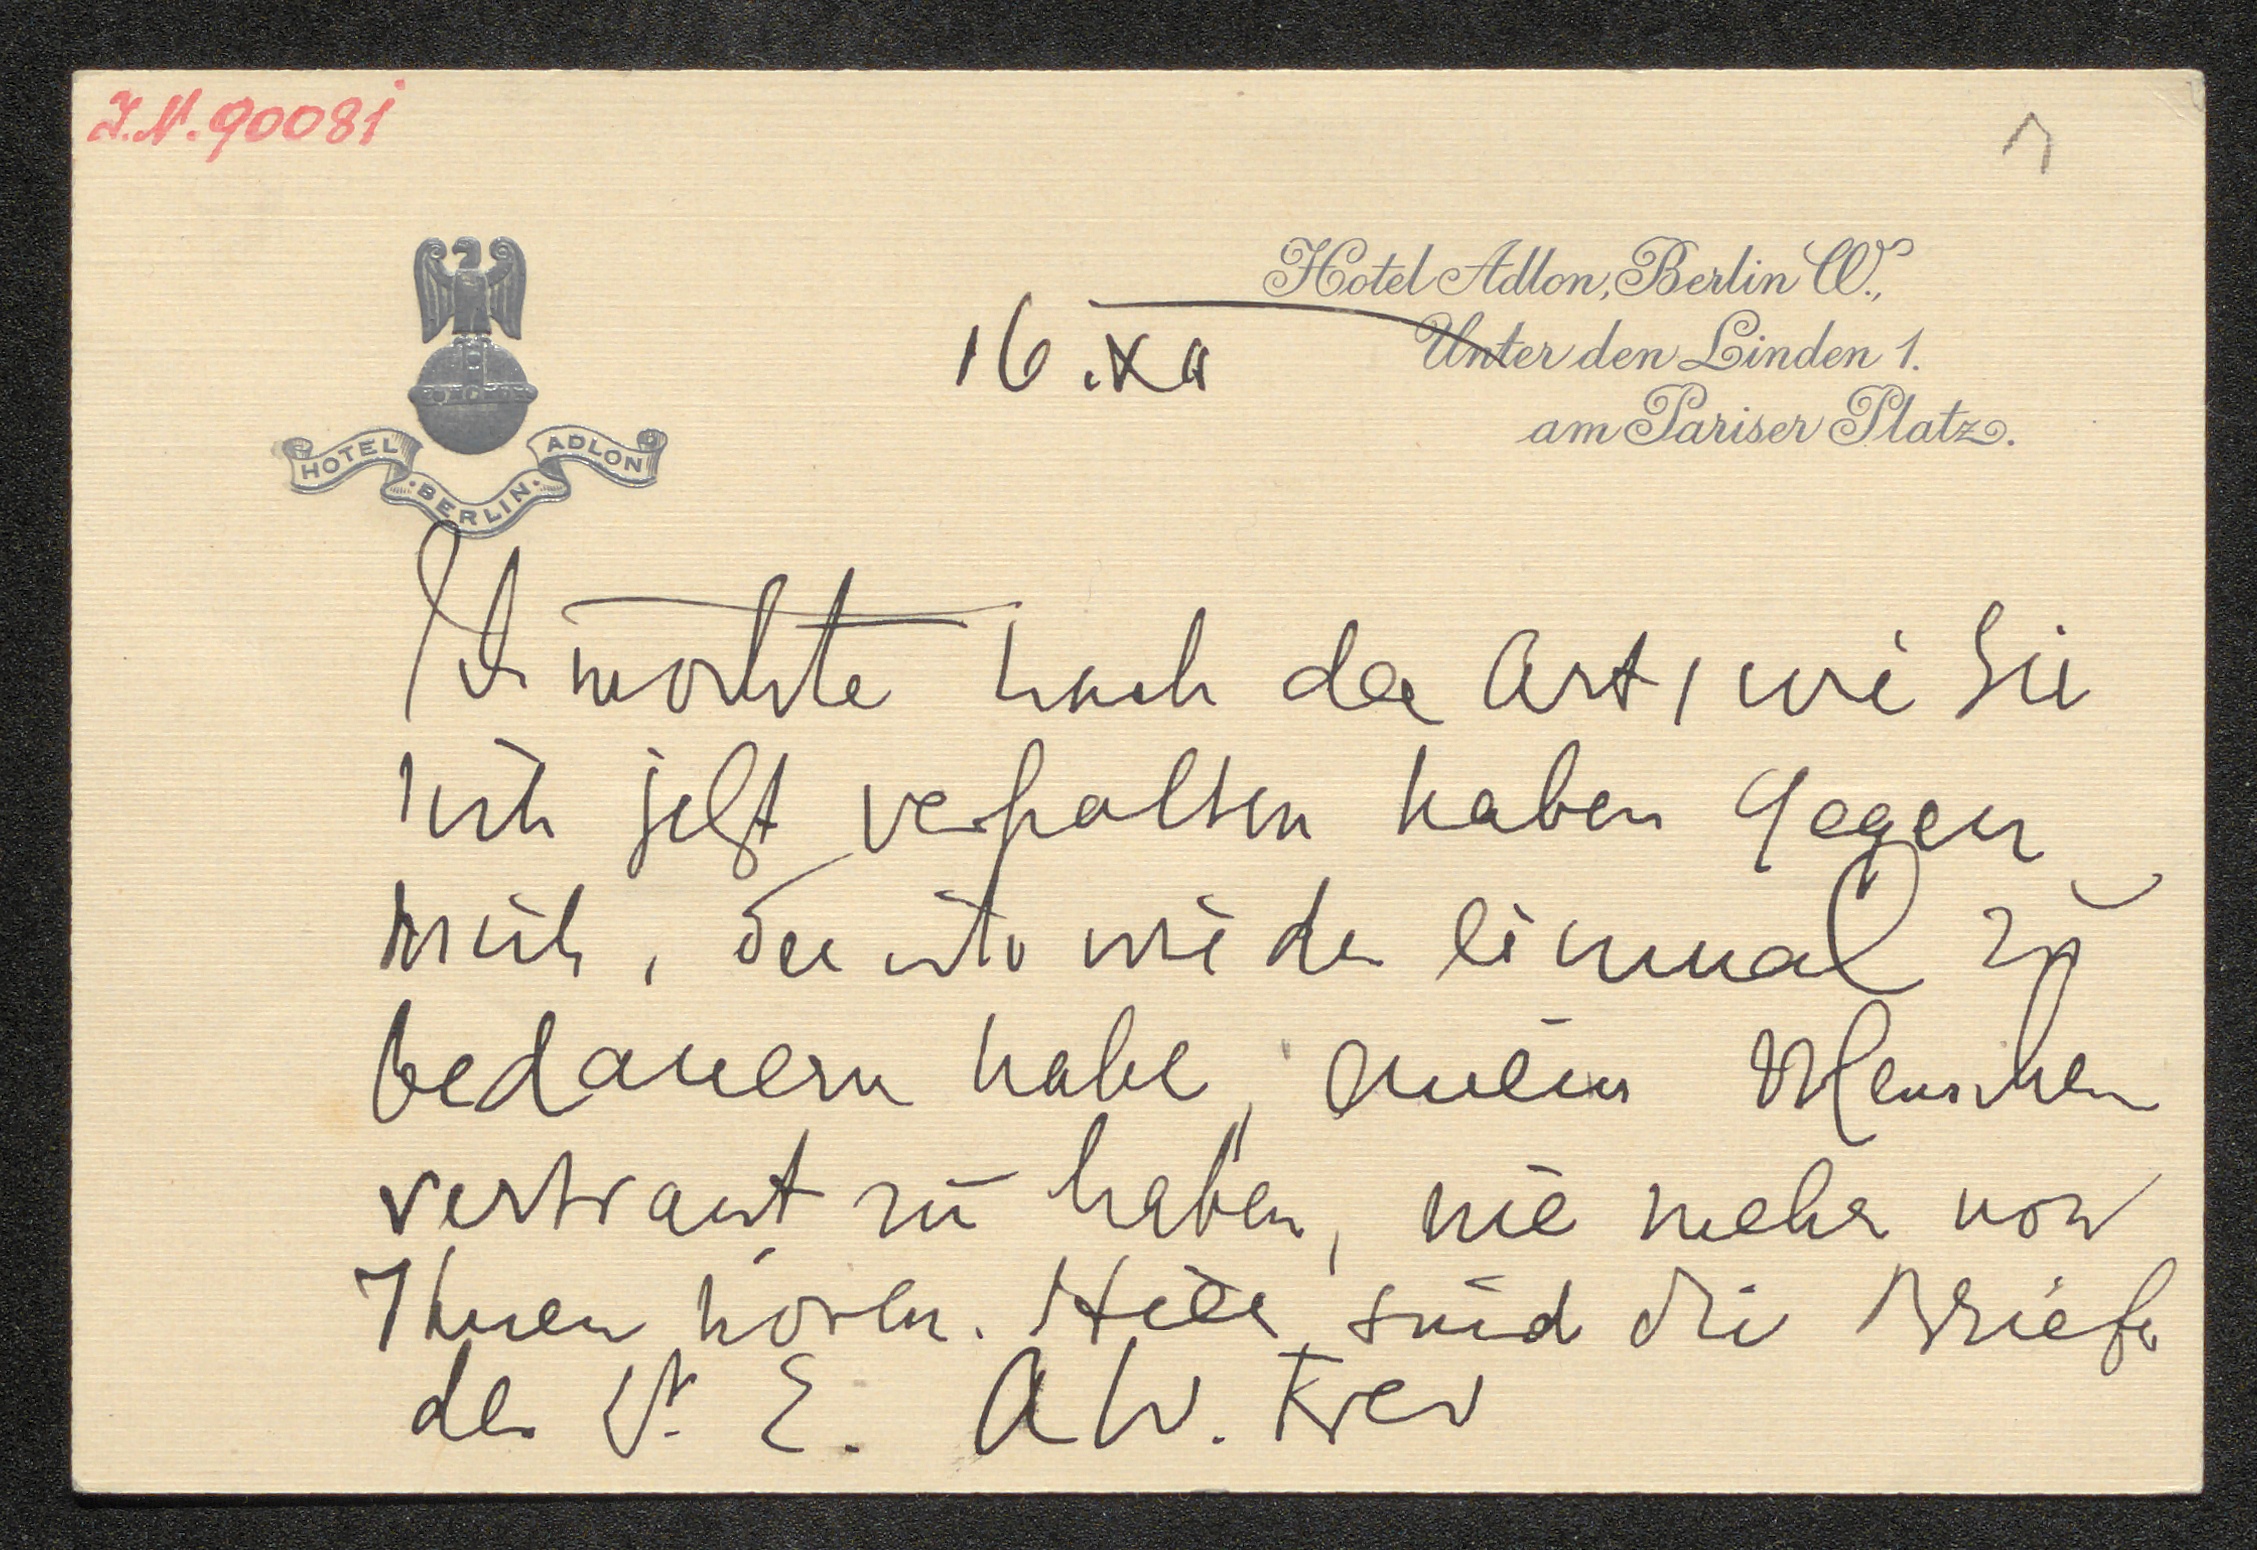 I.N. 90081
1
Hotel Adlon, Berlin W.,
Unter den Linden 1.
am Pariser Platz.
HOTEL BERLIN ADLON
16. XII
Ich möchte nach der Art, wie Sie
sich jetzt verhalten haben gegen
mich, der ich wieder einmal zu
bedauern habe, einem Menschen
vertraut zu haben, nie mehr von
Ihnen hören. Hier sind die Briefe
der E.